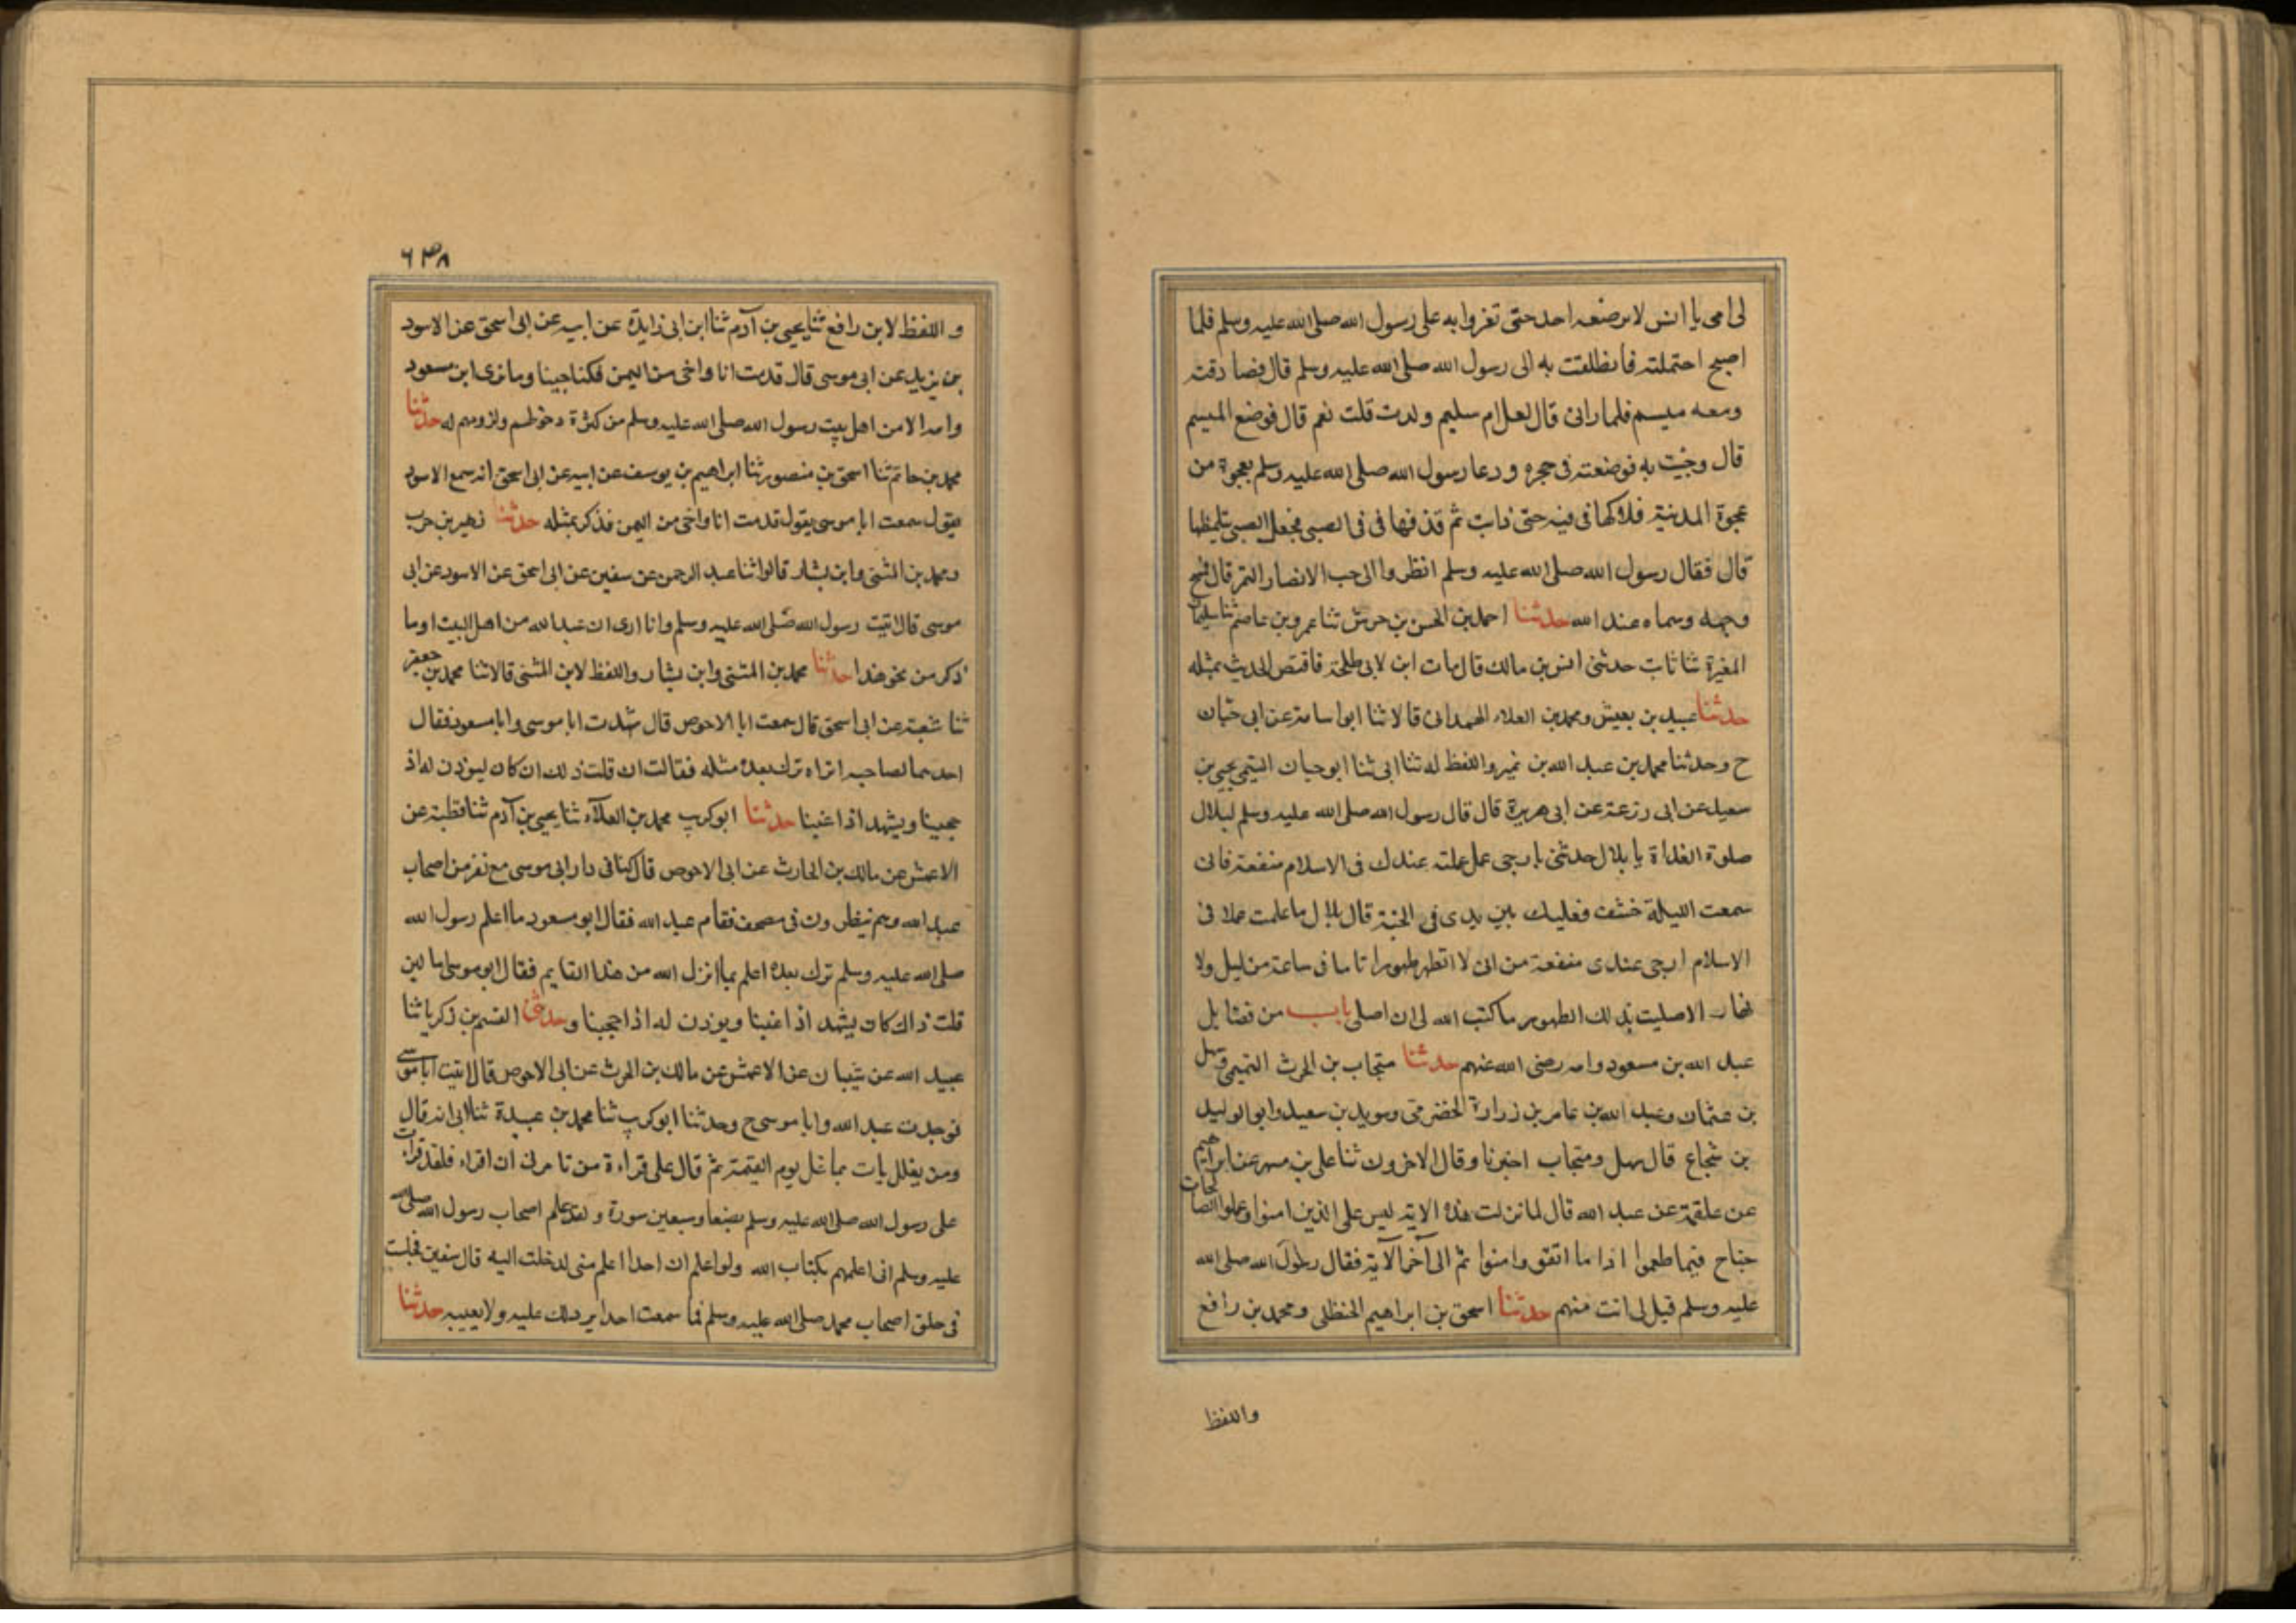 لى امى يا انس لا يرضعه احد حتى تغدوا به على رسول الله صلى الله عليه وسلم فلما
اصبح احتملته فانطلقت به الى رسول الله صلى الله عليه وسلم قال فصادفته
ومعه ميسم فلما رانى قال لعل ام سليم ولدت قلت نعم قال فوضع الميسم
قال وجئت به فوضعته فى حجره ودعا رسول الله صلى الله عليه وسلم بعجوة من
عجوة المدينة فلاكها فى فيه حتى ذابت ثم قذفها فى فى الصبى فجعل الصبى يتلمظها
قال فقال رسول الله صلى الله عليه وسلم انظروا الى حب الانصار التمر قال فمسح
وجهه وسماه عبد الله حدثنا احمد بن الحسن بن خرش ثنا عمرو بن عاصم ثنا سليمان
المغيرة ثنا ثابت حدثنى انس بن مالك قال مات ابن لابى طلحة فاقتص الحديث بمثله
حدثنا عبيد بن يعيش ومحمد بن العلاء الهمدانى قالا ثنا ابو اسامة عن ابى حيان
ح وحدثنا محمد بن عبد الله بن نمير واللفظ له ثنا ابى ثنا ابو حيان التيمى يحيى بن
سعيد عن ابى زرعة عن ابى هريرة قال قال رسول الله صلى الله عليه وسلم لبلال
صلوة الغداة يا بلال حدثنى بارجى عمل عملته عندك فى الاسلام منفعة فانى
سمعت الليلة خشف نعليك بين يدى فى الجنة قال بلال ما عملت عملا فى
الاسلام ارجى عندى منفعة من انى لا اتطهر طهورا تاما فى ساعة من ليل ولا
نهار الا صليت بذلك الطهور ما كتب الله لى ان اصلى باب من فضايل
عبد الله بن مسعود وامه رضى الله عنهم حدثنا منجاب بن الحرث التميمى وسهل
بن عثمان وعبد الله بن عامر بن زرارة الحضرمى وسويد بن سعيد وابو الوليد
بن شجاع قال سهل ومنجاب اخبرنا وقال الاخرون ثنا على بن مسهر عن ابراهيم
عن علقمة عن عبد الله قال لما نزلت هذه الاية ليس على الذين امنوا وعملوا الصالحات
جناح فيما طعموا اذا ما اتقوا وامنوا ثم الى آخر الآية فقال رسول الله صلى الله
عليه وسلم قيل لى انت منهم حدثنا اسحق بن ابراهيم الحنظلى ومحمد بن رافع
واللفظ
٦٣٨
واللفظ لابن رافع ثنا يحيى بن آدم ثنا ابن ابى زايدة عن ابيه عن ابى اسحق عن الاسود
بن يزيد عن ابى موسى قال قدمت انا واخى من اليمن فكنا حينا وما نرى ابن مسعود
وامه الا من اهل بيت رسول الله صلى الله عليه وسلم من كثرة دخولهم ولزومهم له حدثنا
محمد بن حاتم ثنا اسحق بن منصور ثنا ابراهيم بن يوسف عن ابيه عن ابى اسحق انه سمع الاسود
يقول سمعت ابا موسى يقول قدمت انا واخى من اليمن فذكر بمثله حدثنا زهير بن حرب
ومحمد بن المثنى وابن بشار قالوا ثنا عبد الرحمن عن سفين عن ابى اسحق عن الاسود عن ابى
موسى قال اتيت رسول الله صلى الله عليه وسلم وانا ارى ان عبد الله من اهل البيت او ما
ذكر من نحو هذا حدثنا محمد بن المثنى وابن بشار واللفظ لابن المثنى قالا ثنا محمد بن جعفر
ثنا شعبة عن ابى اسحق قال سمعت ابا الاحوص قال شهدت ابا موسى وابا مسعود فقال
احدهما لصاحبه اتراه ترك بعده مثله فقالت ان قلت ذلك ان كان ليوذن له اذ
حجبنا ويشهد اذا غبنا حدثنا ابو كريب محمد بن العلآء ثنا يحيى بن آدم ثنا قطبة عن
الاعمش عن مالك بن الحارث عن ابى الاحوص قال كنا فى دار ابى موسى مع نفر من اصحاب
عبد الله وهم ينظرون فى مصحف فقام عبد الله فقال ابو مسعود ما اعلم رسول الله
صلى الله عليه وسلم ترك بعده اعلم بما انزل الله من هذا القايم فقال ابو موسى اما لين
قلت ذاك كان يشهد اذا غبنا ويوذن له اذا حجبنا وحدثنى القسم بن زكريا ثنا
عبيد الله عن شيبان عن الاعمش عن مالك بن الحرث عن ابى الاحوص قال اتيت ابا موسى
فوجدت عبد الله وابا موسى ح وحدثنا ابو كريب ثنا محمد بن عبيدة ثنا ابى انه قال
ومن يغلل يات بما غل يوم القيمة ثم قال على قراءة من تامرنى ان اقراء فلقد قرات
على رسول الله صلى الله عليه وسلم بضعا وسبعين سورة ولقد علم اصحاب رسول الله صلى الله
عليه وسلم انى اعلمهم بكتاب الله ولو اعلم ان احدا اعلم منى لدخلت اليه قال سفين فجلست
فى حلق اصحاب محمد صلى الله عليه وسلم فما سمعت احدا يرد ذلك عليه ولا يعيبه حدثنا